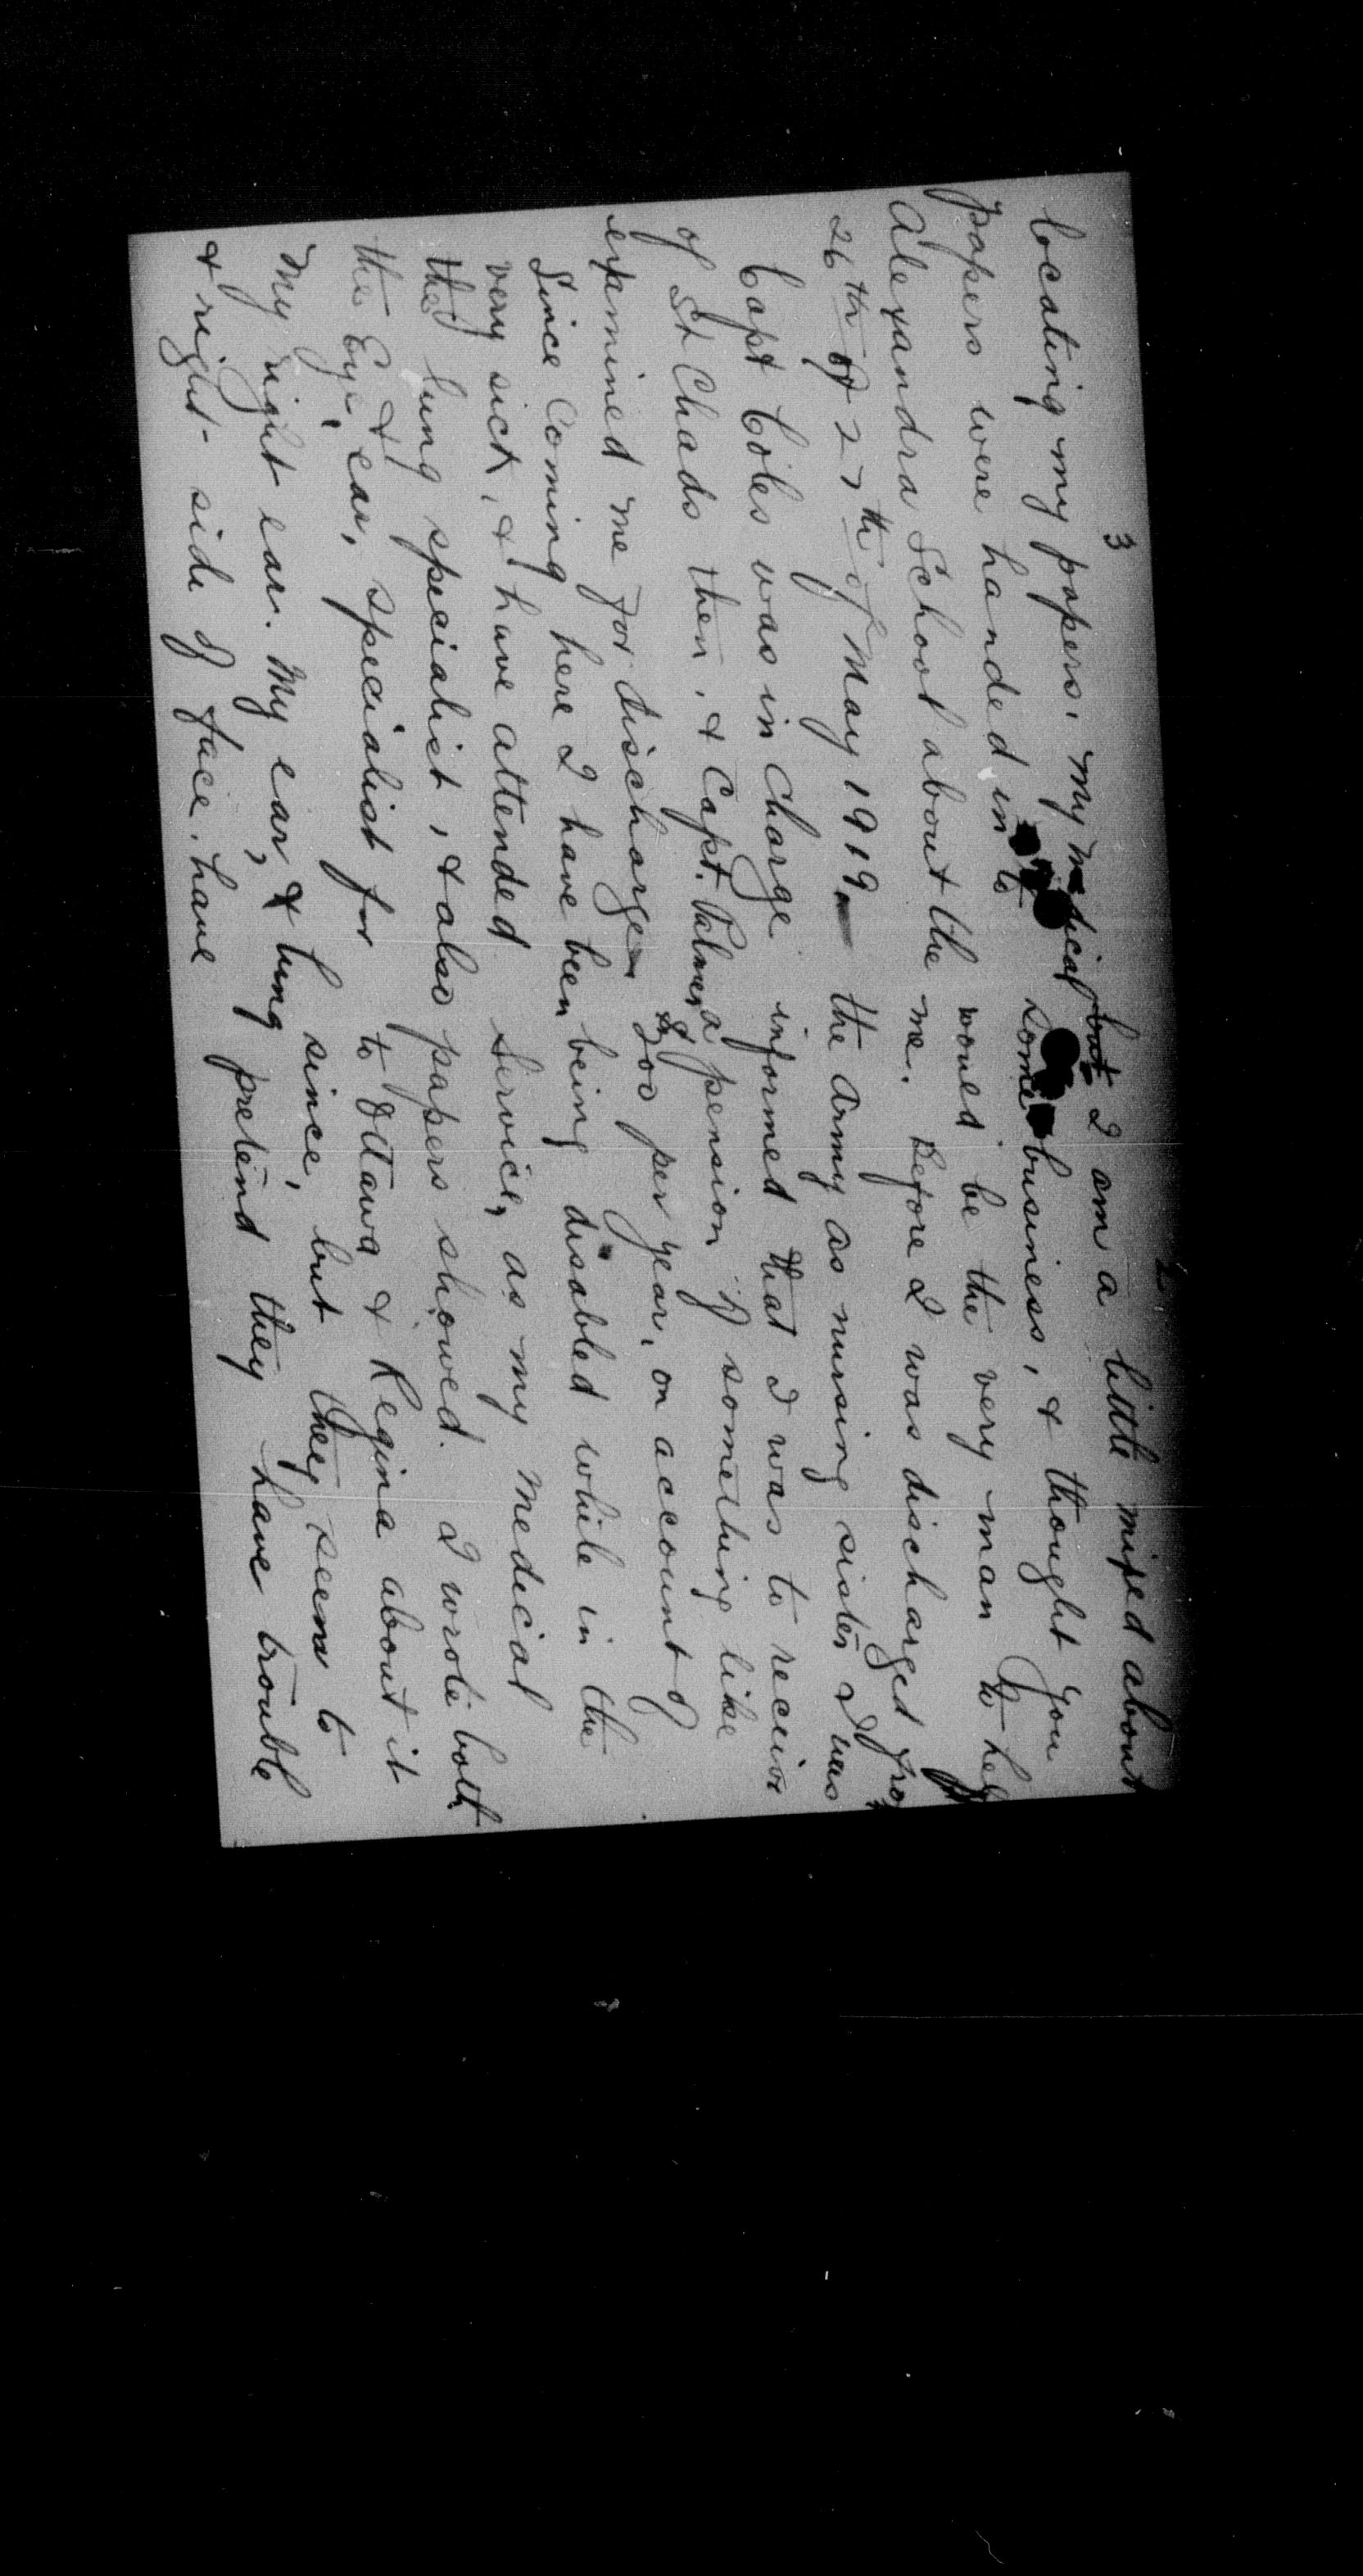 2
but I am a little mixed about
some business, & thought you
would be the very man to help
me. Before I was discharged from
the Army as nursing sister I was
informed that I was to receive
a pension of something like
$200 per year, on account of
being disabled while in the
Service, as my medical
papers showed. I wrote both
to Ottawa & Regina about it
since, but they seem to
pretend they have trouble
3
locating my papers. My medical
papers were handed in to
Alexandra School about the
26th or 27th of May 1919.
Capt Coles was in Charge
of St Chads then, & Capt. Palmer
examined me for discharge
Since Coming here I have been
very sick, & have attended
the lung specialist, & also
the Eye, & ear, specialist for
My right ear. My ear, & lung
& right side of face. have